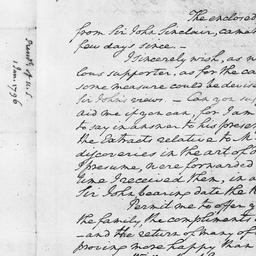 Presidt of U.S.
1 Jan. 1796
The enclosed
from Sir John Sinclair, came
few days since.—
I sincerely wish, as
lous supporter, as for the ca
some measure could be devise
Sir John's views — Can you
aid me if you can, for I am
to say in answer to his prese
the Extracts relative to
discoveries in the art of
I presume, were forwarded
time I received them, in a
Sir John bearing date the
Permit me to offer
the family, the compliments o
— and the return of many of
proving more happy than